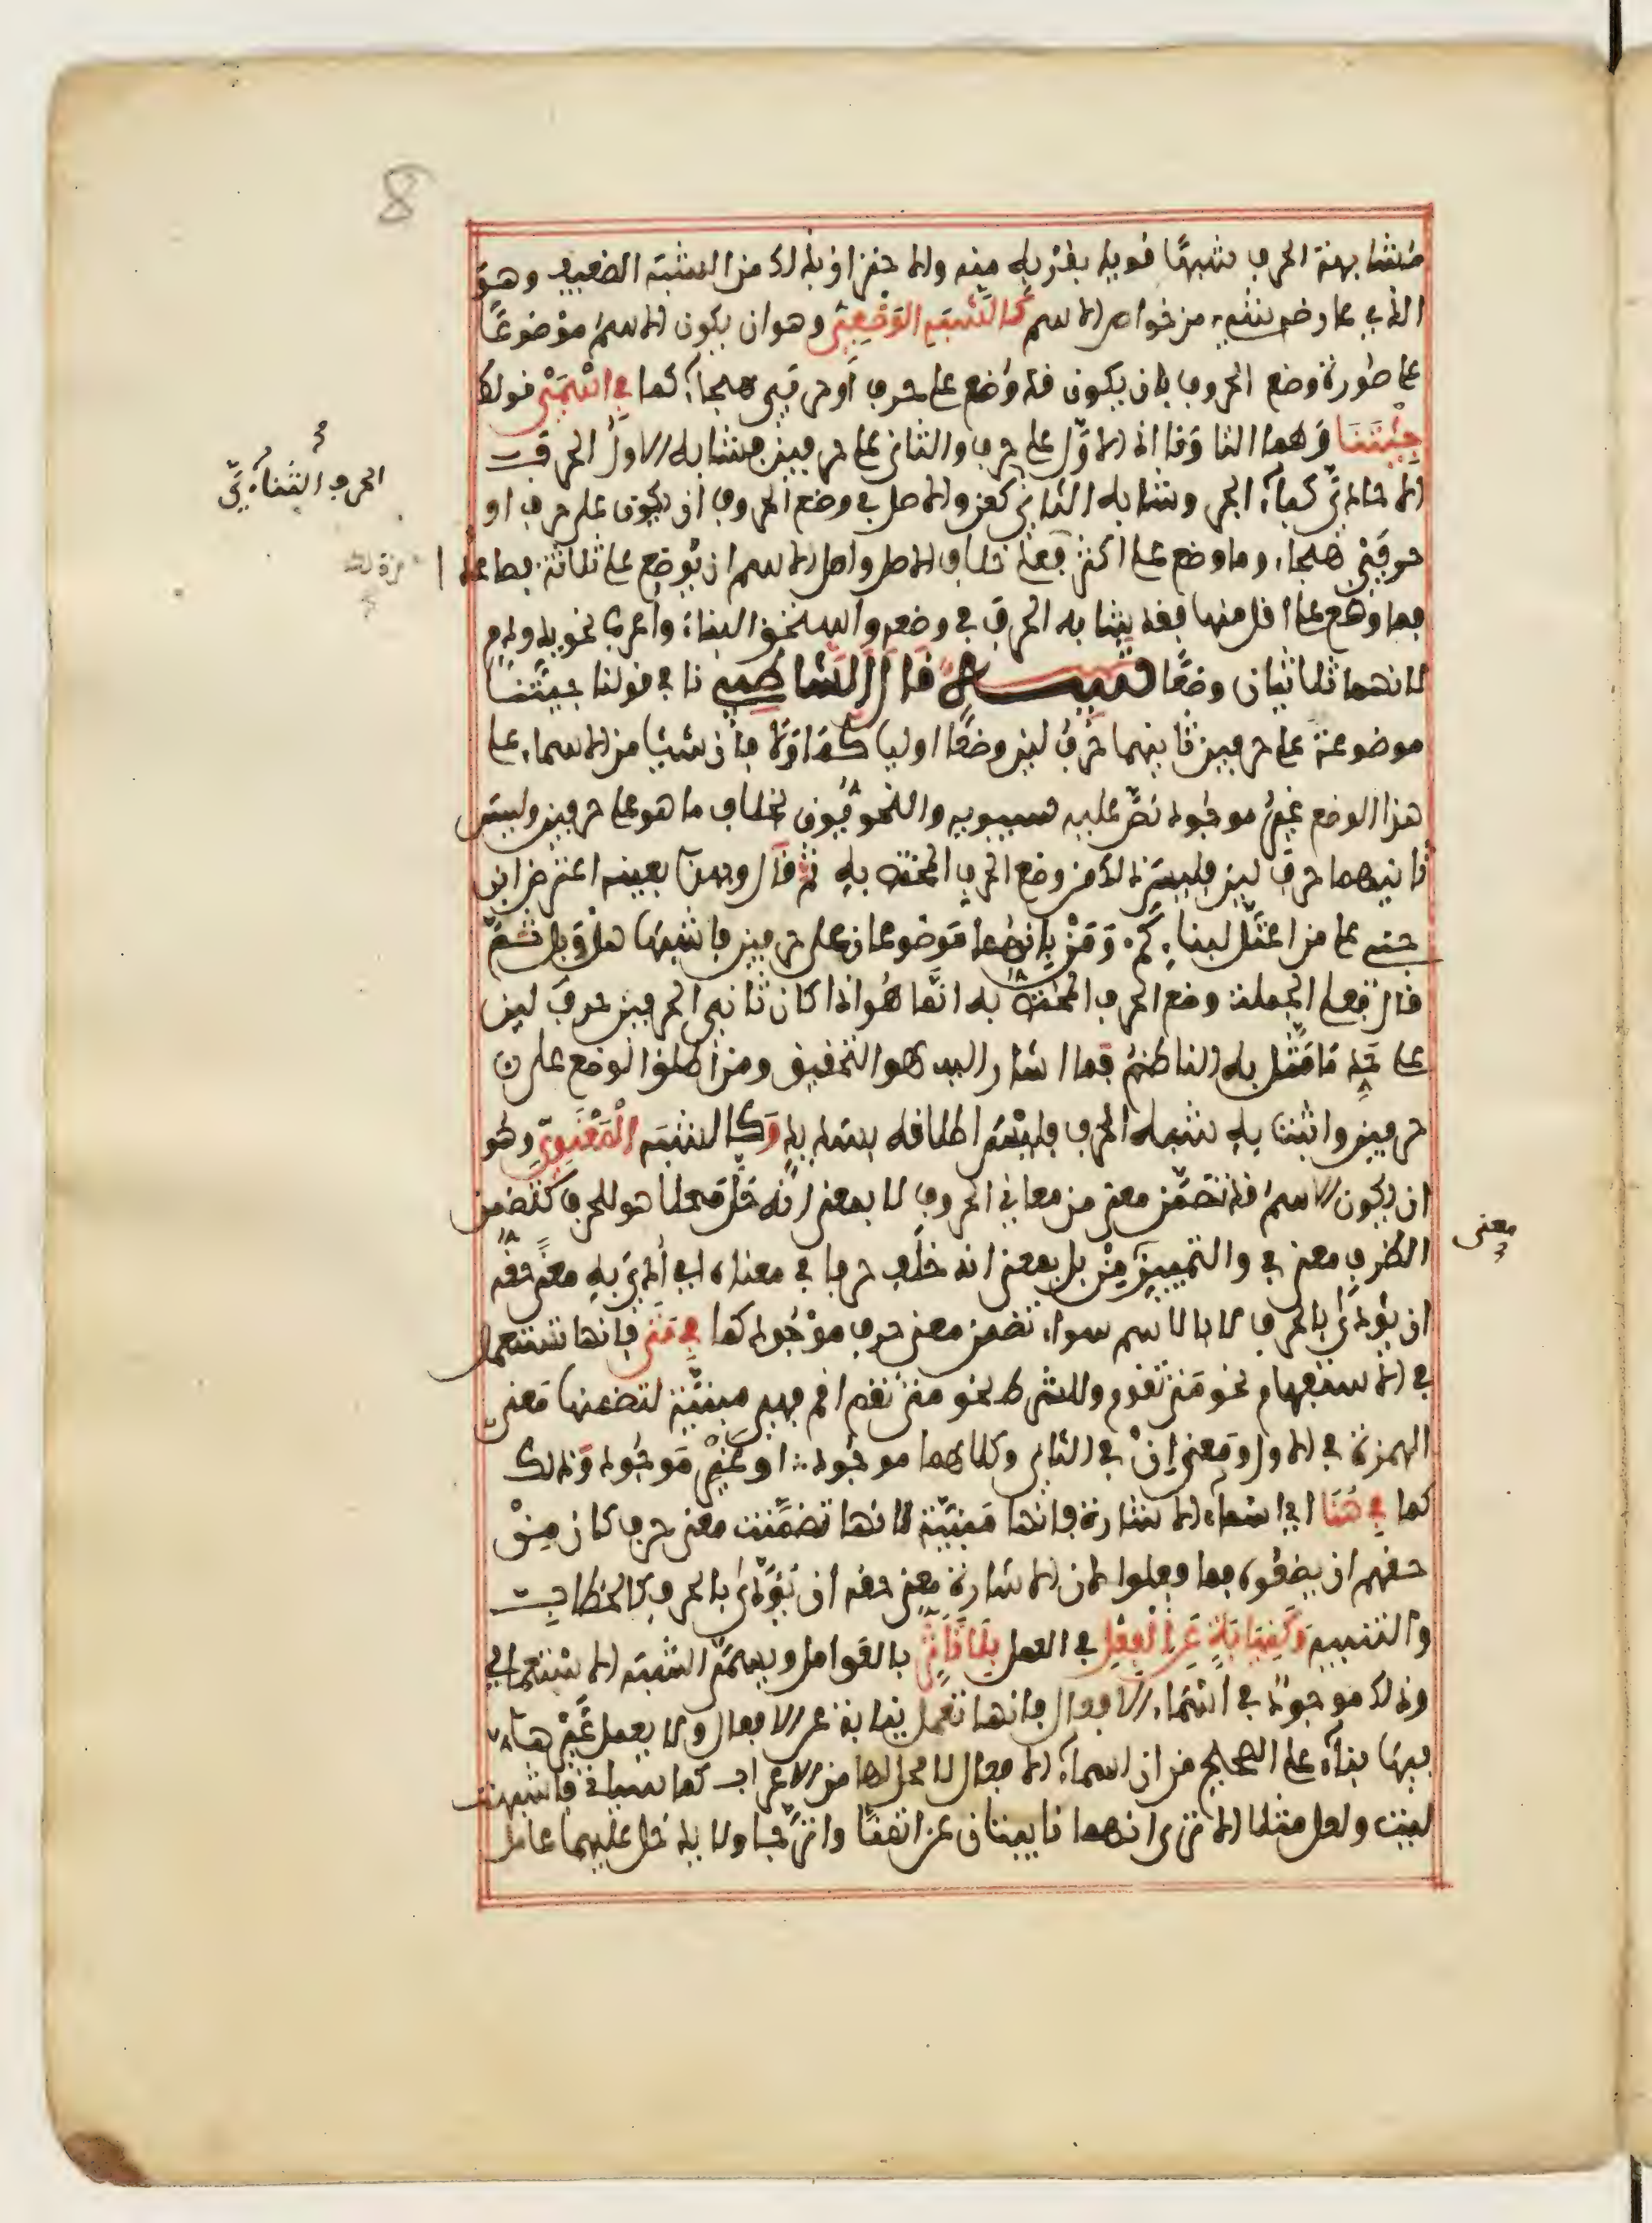 8
مشابهة الحرف شبها قويا يقربه منه والاحتراز بذلك من الشبه الضعيف وهو
الذي عارضه شيء من خواص الاسم كالشبه الوضعي وهو ان يكون الاسم موضوعا
على صورة وضع الحروف بان يكون قد وضع على حرف أو حرفي هجاء كما في اسمي قولك
جئتنا وهما التا ونا اذ الاول على حرف والثاني على حرفين فشابه الاول الحرف
الاحادي كباء الجر وشابه الثاني كعن والاصل في وضع الحروف ان يكون على حرف او
حرفي هجاء وما وضع على اكثر فعلى خلاف الاصل واصل الاسم ان يوضع على ثلاثة فصاعدا
فما وضع على اقل منها فقد شابه الحرف في وضعه واستحق البناء واعرب نحو يد ودم
لانهما ثلاثيان وضعا تنبيه قال الشاطبي نا في قولنا جئتنا
موضوعة على حرفين ثانيهما حرف لين وضعا اوليا كما ولا فان شيئا من الاسماء على
هذا الوضع غير موجود نص عليه سيبويه والنحويون بخلاف ما هو على حرفين وليس
ثانيهما حرف لين فليس ذلك من وضع الحرف المختص به ثم قال وبهذا بعينه اعترض ابن
جني على من اعتل لبناء كم ومن بانهما موضوعان على حرفين فاشبها هل وبل ثم
قال فعلى الجملة وضع الحرف المختص به انما هو اذا كان ثاني الحرفين حرف لين
على حد ما مثل به الناظم فما اشار اليه هو التحقيق ومن اطلق الوضع على
حرفين واثبت به شبه الحرف فليس اطلاقه بسديد وكالشبه المعنوي وهو
ان يكون الاسم قد تضمن معنى من معاني الحروف لا بمعنى انه حل محلا هو للحرف كتضمن
الظرف معنى في والتمييز من بل بمعنى انه خلف حرفا في معناه اي ادي به معنى حقه
ان يؤدى بالحرف لا بالاسم سواء تضمن معنى حرف موجود كما في متى فانها تستعمل
في الاستفهام نحو متى تقوم وللشرط نحو متى تقم اقم فهي مبنية لتضمنها معنى
الهمزة في الاول ومعنى ان في الثاني وكلاهما موجود او غير موجود وذلك
كما في هنا اي اسماء الاشارة فانها مبنية لانها تضمنت معنى حرف كان من
حقهم ان يضعوه فما فعلوا لان الاشارة معنى حقه ان يؤدى بالحرف كالخطاب
والتنبيه وكنيابة عن الفعل في العمل بلا تاثر بالعوامل ويسمى الشبه الاستعمالي
وذلك موجود في اسماء الافعال فانها تعمل نيابة عن الافعال ولا يعمل غيرها
فيها بناء على الصحيح من ان اسماء الافعال لا محل لها من الاعراب كما سياتي فاشبهت
ليت ولعل مثلا الا ترى انهما نايبتان عن اتمنى واترجى ولا يدخل عليهما عامل
الحرف الثنائي
معنى